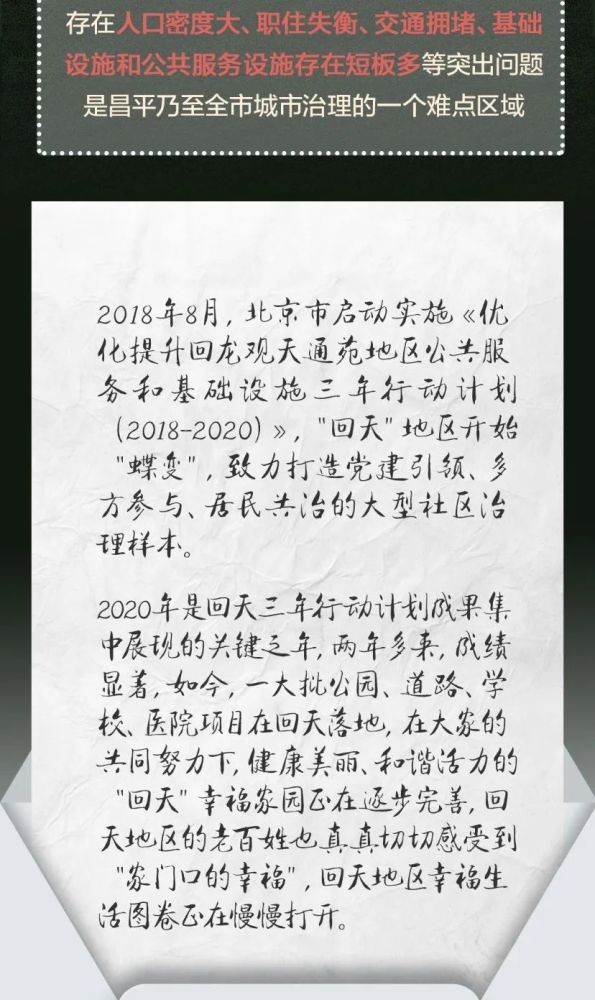 存在人口密度大、职住失衡、交通拥堵、基础
设施和公共服务设施存在短板多等突出问题
是昌平乃至全市城市治理的一个难点区域
2018年8月，北京市启动实施《优
化提升回龙观天通苑地区公共服
务和基础设施三年行动计划
（2018-2020）》，"回天"地区开始
"蝶变"，致力打造党建引领、多
方参与、居民共治的大型社区治
理样本。
2020年是回天三年行动计划成果集
中展现的关键之年，两年多来，成绩
显著，如今，一大批公园、道路、学
校、医院项目在回天落地，在大家的
共同努力下，健康美丽、和谐活力的
"回天"幸福家园正在逐步完善，回
天地区的老百姓也真真切切感受到
"家门口的幸福"，回天地区幸福生
活图卷正在慢慢打开。